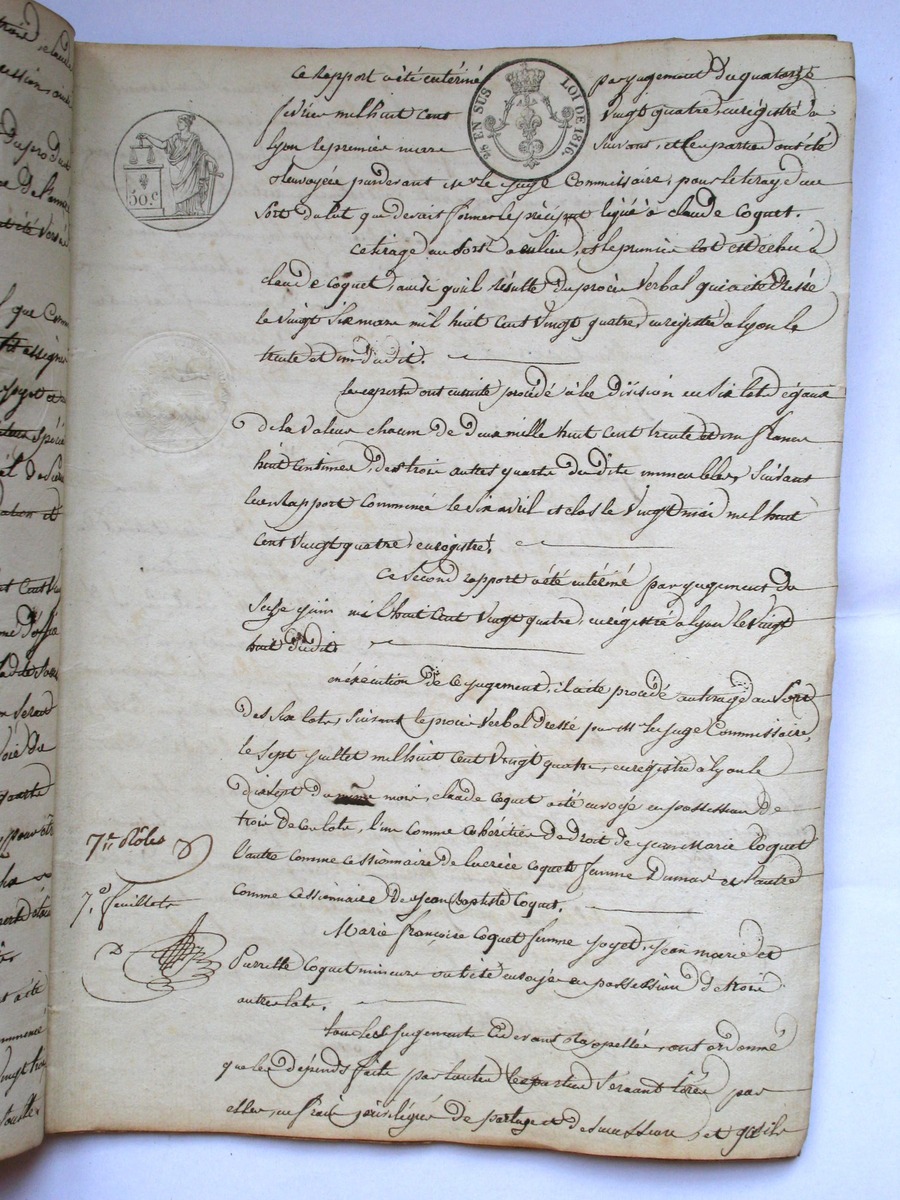 Ce rapport a été entériné par jugement du quatorze
février mil huit cent vingt quatre enregistré à
Lyon le premier mars suivant, et les parties ont été
renvoyées pardevant Mr le juge Commissaire, pour le tirage au
Sort du lot que devait former le préciput légué à Claude Coquet.
Ce tirage au Sort a eu lieu, et le premier lot est échu à
Claude Coquet, ainsi qu'il résulte du procès Verbal qui a été dressé
le vingt Six mars mil huit Cent vingt quatre, enregistré à Lyon le
trente et un dudit.
Les experts ont ensuite procédé à la Division en Six lots égaux
de la valeur chacun de Deux mille huit cent trente et un francs
huit Centimes, des trois autres quarts desdits immeubles, Suivant
leur Rapport Commencé le Six avril et clos le vingt mai mil huit
Cent vingt quatre, enregistré.
Ce Second rapport a été entériné par jugement du
Seize juin mil huit Cent vingt quatre, enregistré à Lyon le vingt
huit dudit
en exécution de ce jugement, il a été procédé au tirage au Sort
des Six lots, Suivant le procès verbal dressé par Mr le juge Commissaire,
le Sept juillet mil huit Cent vingt quatre, enregistré à Lyon le
dixsept du même mois, Claude Coquet a été envoyé en possession de
trois de ces lots, l'un Comme Cohéritier de droit de Jean Marie Coquet
l'autre Comme Cessionnaire de Lucrèce Coquet femme Dumas et l'autre
Comme Cessionnaire de Jean Baptiste Coquet.
Marie françoise Coquet femme Joyet, Jean marie et
Pierrette Coquet mineurs ont été envoyés en possession des trois
autres lots.
tous les jugements Cidevant Rappellés, ont ordonné
que les dépends faits par toutes les parties Seraient tirés par
elles, en frais privilégiés de partage et de succession, et qu'ils
7e Rôles
7e feuillets
50 c
2/5 EN SUS
LOI DE 1816.